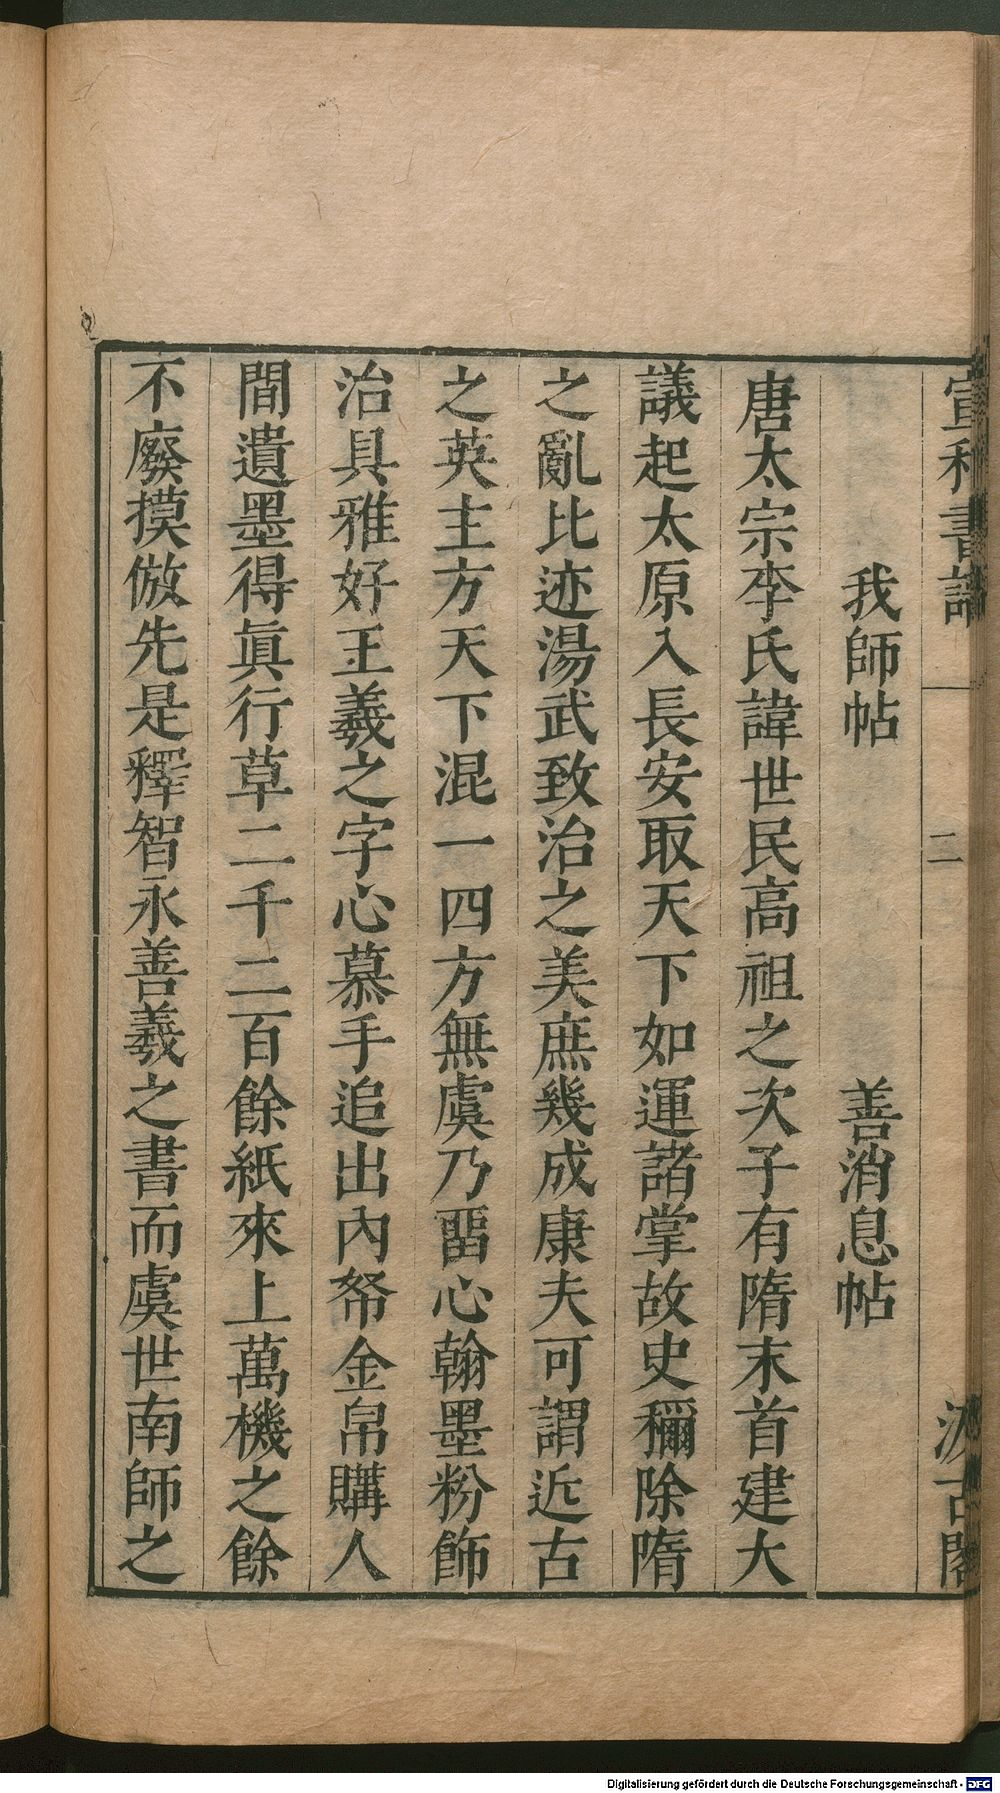 宣和書譜 二 汲古閣
我師帖 善消息帖
唐太宗李氏諱世民高祖之次子有隋末首建大
議起太原入長安取天下如運諸掌故史稱除隋
之亂比迹湯武致治之美庶幾成康夫可謂近古
之英主方天下混一四方無虞乃畱心翰墨粉飾
治具雅好王羲之字心慕手追出內帑金帛購人
間遺墨得眞行草二千二百餘紙來上萬機之餘
不廢摸倣先是釋智永善羲之書而虞世南師之
Digitalisierung gefördert durch die Deutsche Forschungsgemeinschaft - DFG